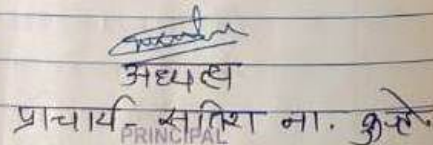 अध्यक्ष
प्राचार्य - सतिश ना.
PRINCIPAL